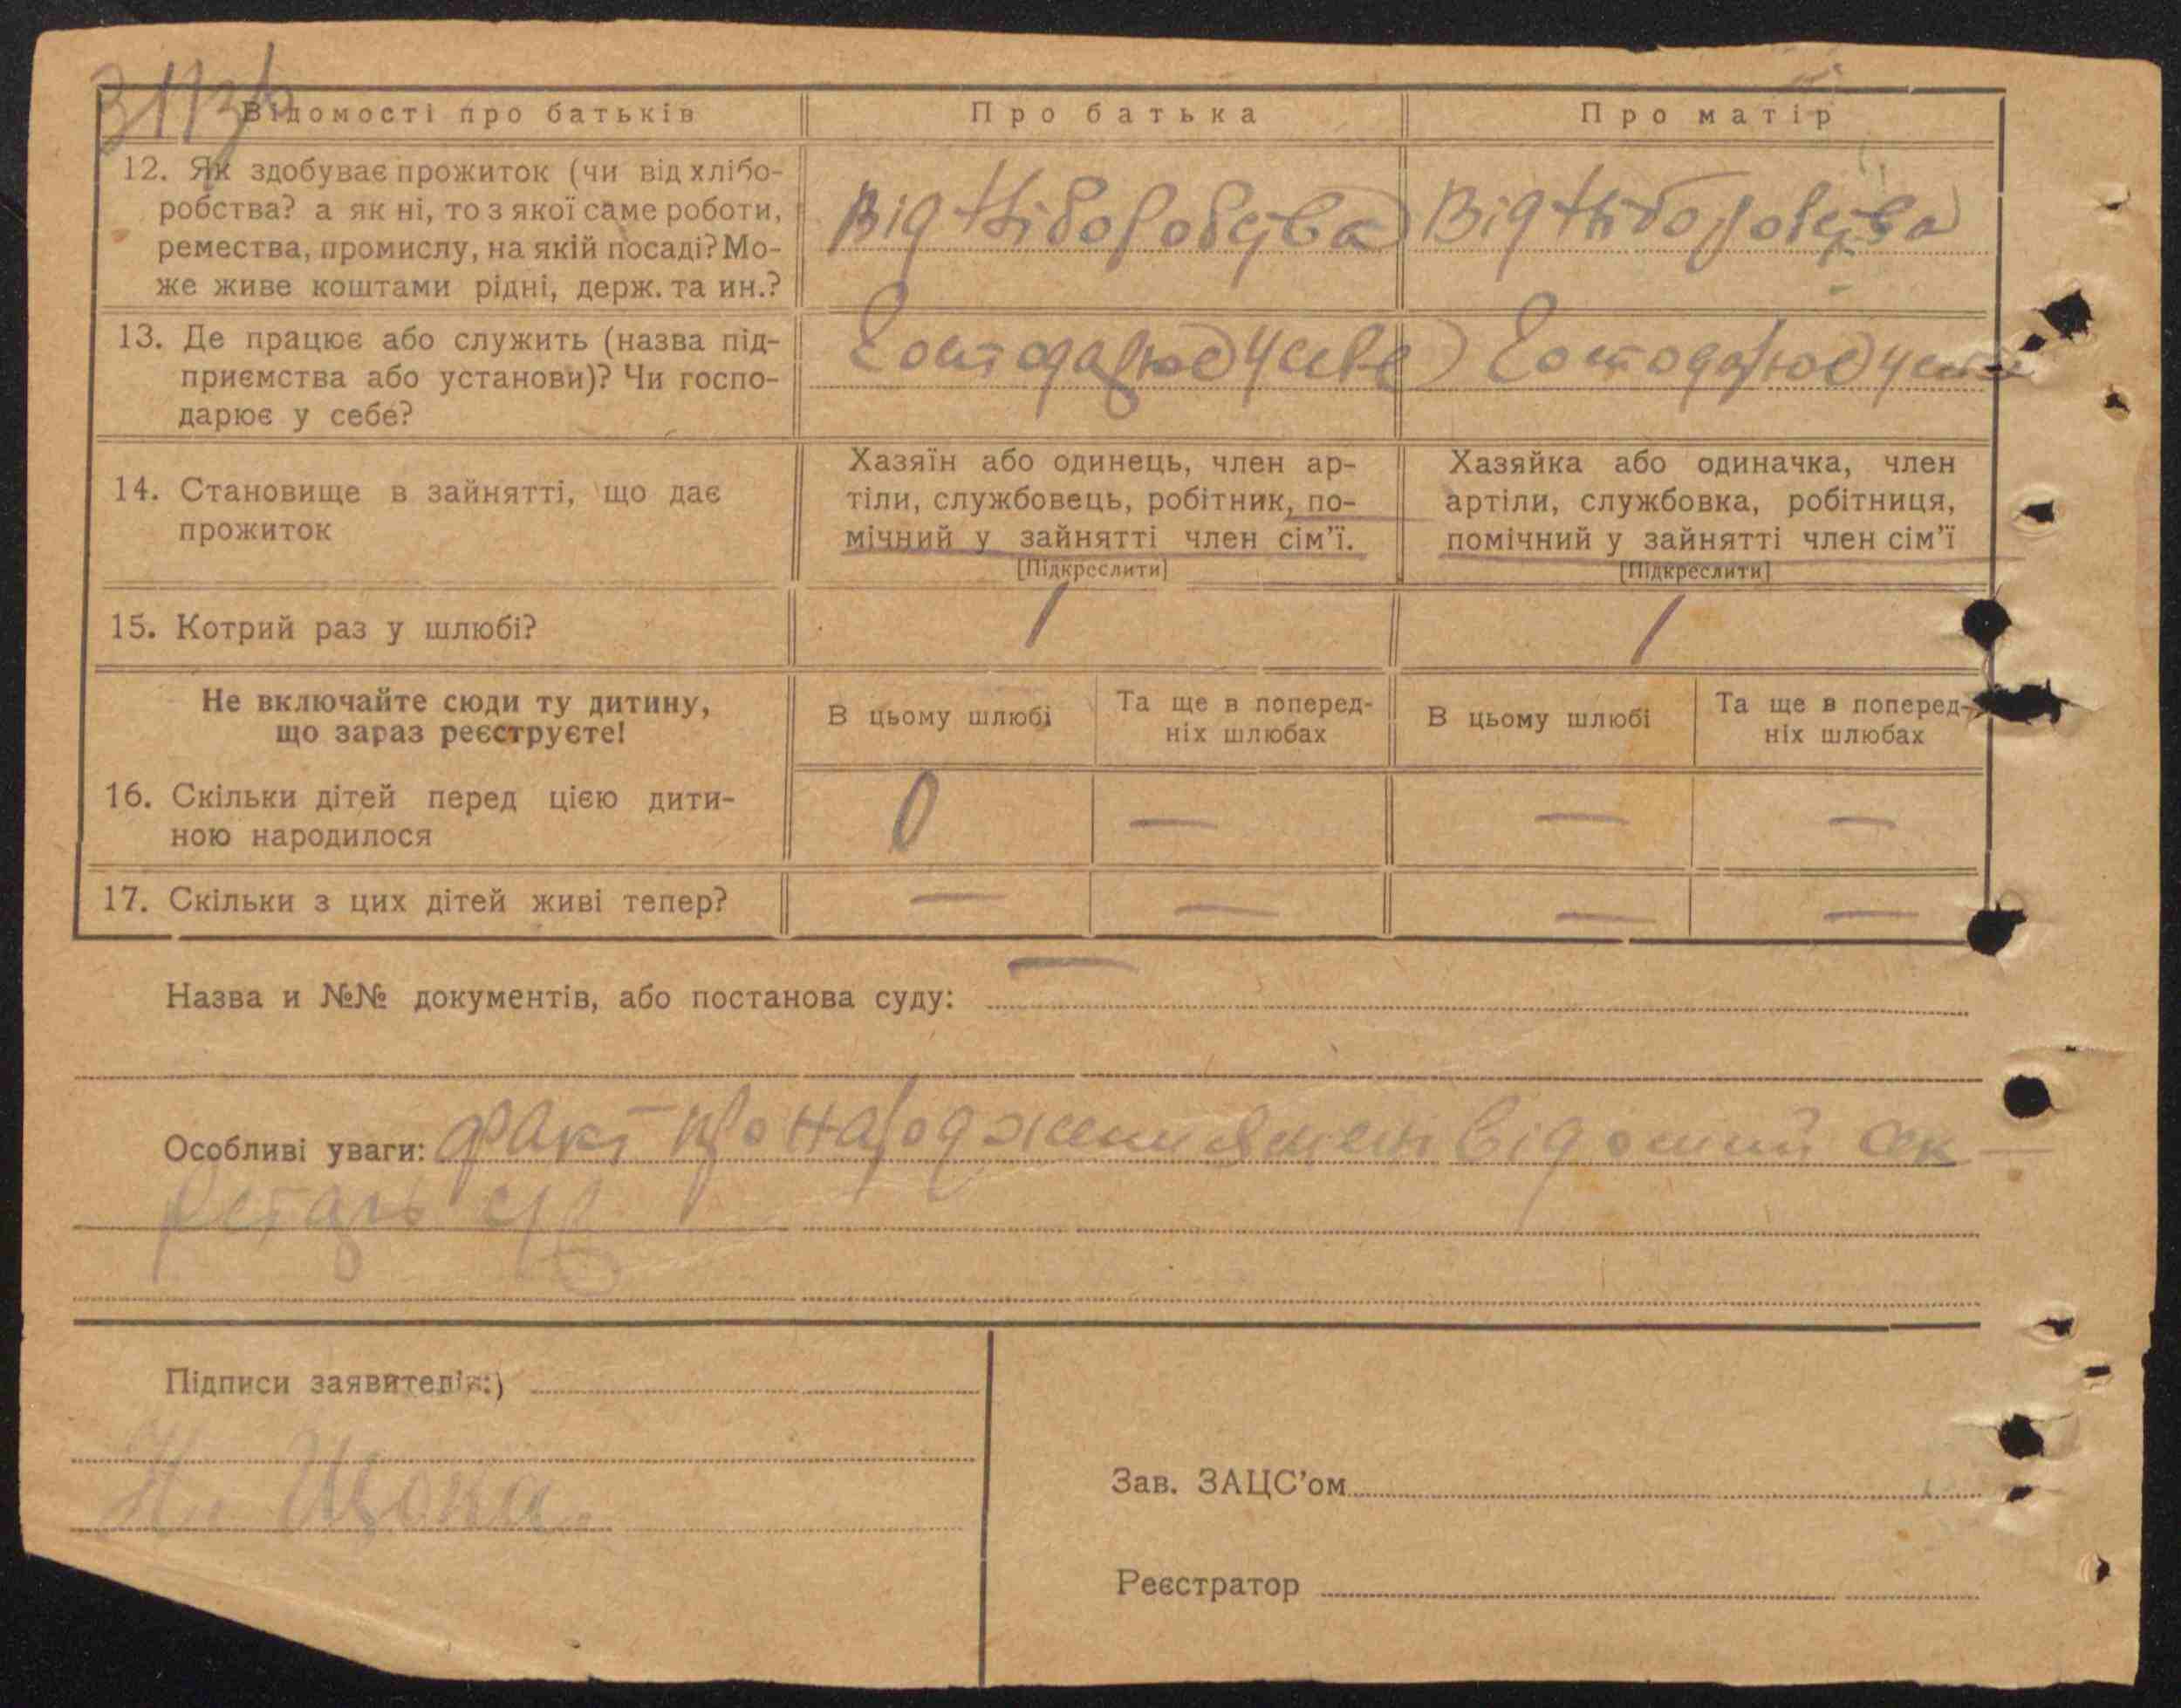 Відомості про батьків Про батька Про матір
12. Як здобуває прожиток (чи від хлібо-
робства? а як ні, то з якої саме роботи,
ремества, промислу, на якій посаді? Мо-
же живе коштами рідні, держ. та ин.?
Від Хліборобства Від Хліборобства
13. Де працює або служить (назва під-
приємства або установи)? Чи госпо-
дарює у себе?
Господарює у себе Господарює у себе
14. Становище в зайнятті, що дає
прожиток
Хазяїн або одинець, член ар-
тіли, службовець, робітник, по-
мічний у зайнятті член сім'ї.
[Підкреслити]
Хазяйка або одиначка, член
артіли, службовка, робітниця,
помічний у зайнятті член сім'ї
[Підкреслити]
15. Котрий раз у шлюбі? 1 1
Не включайте сюди ту дитину,
що зараз реєструєте!
В цьому шлюбі
Та ще в поперед-
ніх шлюбах
В цьому шлюбі
Та ще в поперед-
ніх шлюбах
16. Скільки дітей перед цією дити-
ною народилося
0 — — —
17. Скільки з цих дітей живі тепер? — — — —
Назва и №№ документів, або постанова суду: —
Особливі уваги: факт про народження мені відомий сек
ретарь с/р
Підписи заявителів:)
Зав. ЗАЦС'ом
Реєстратор